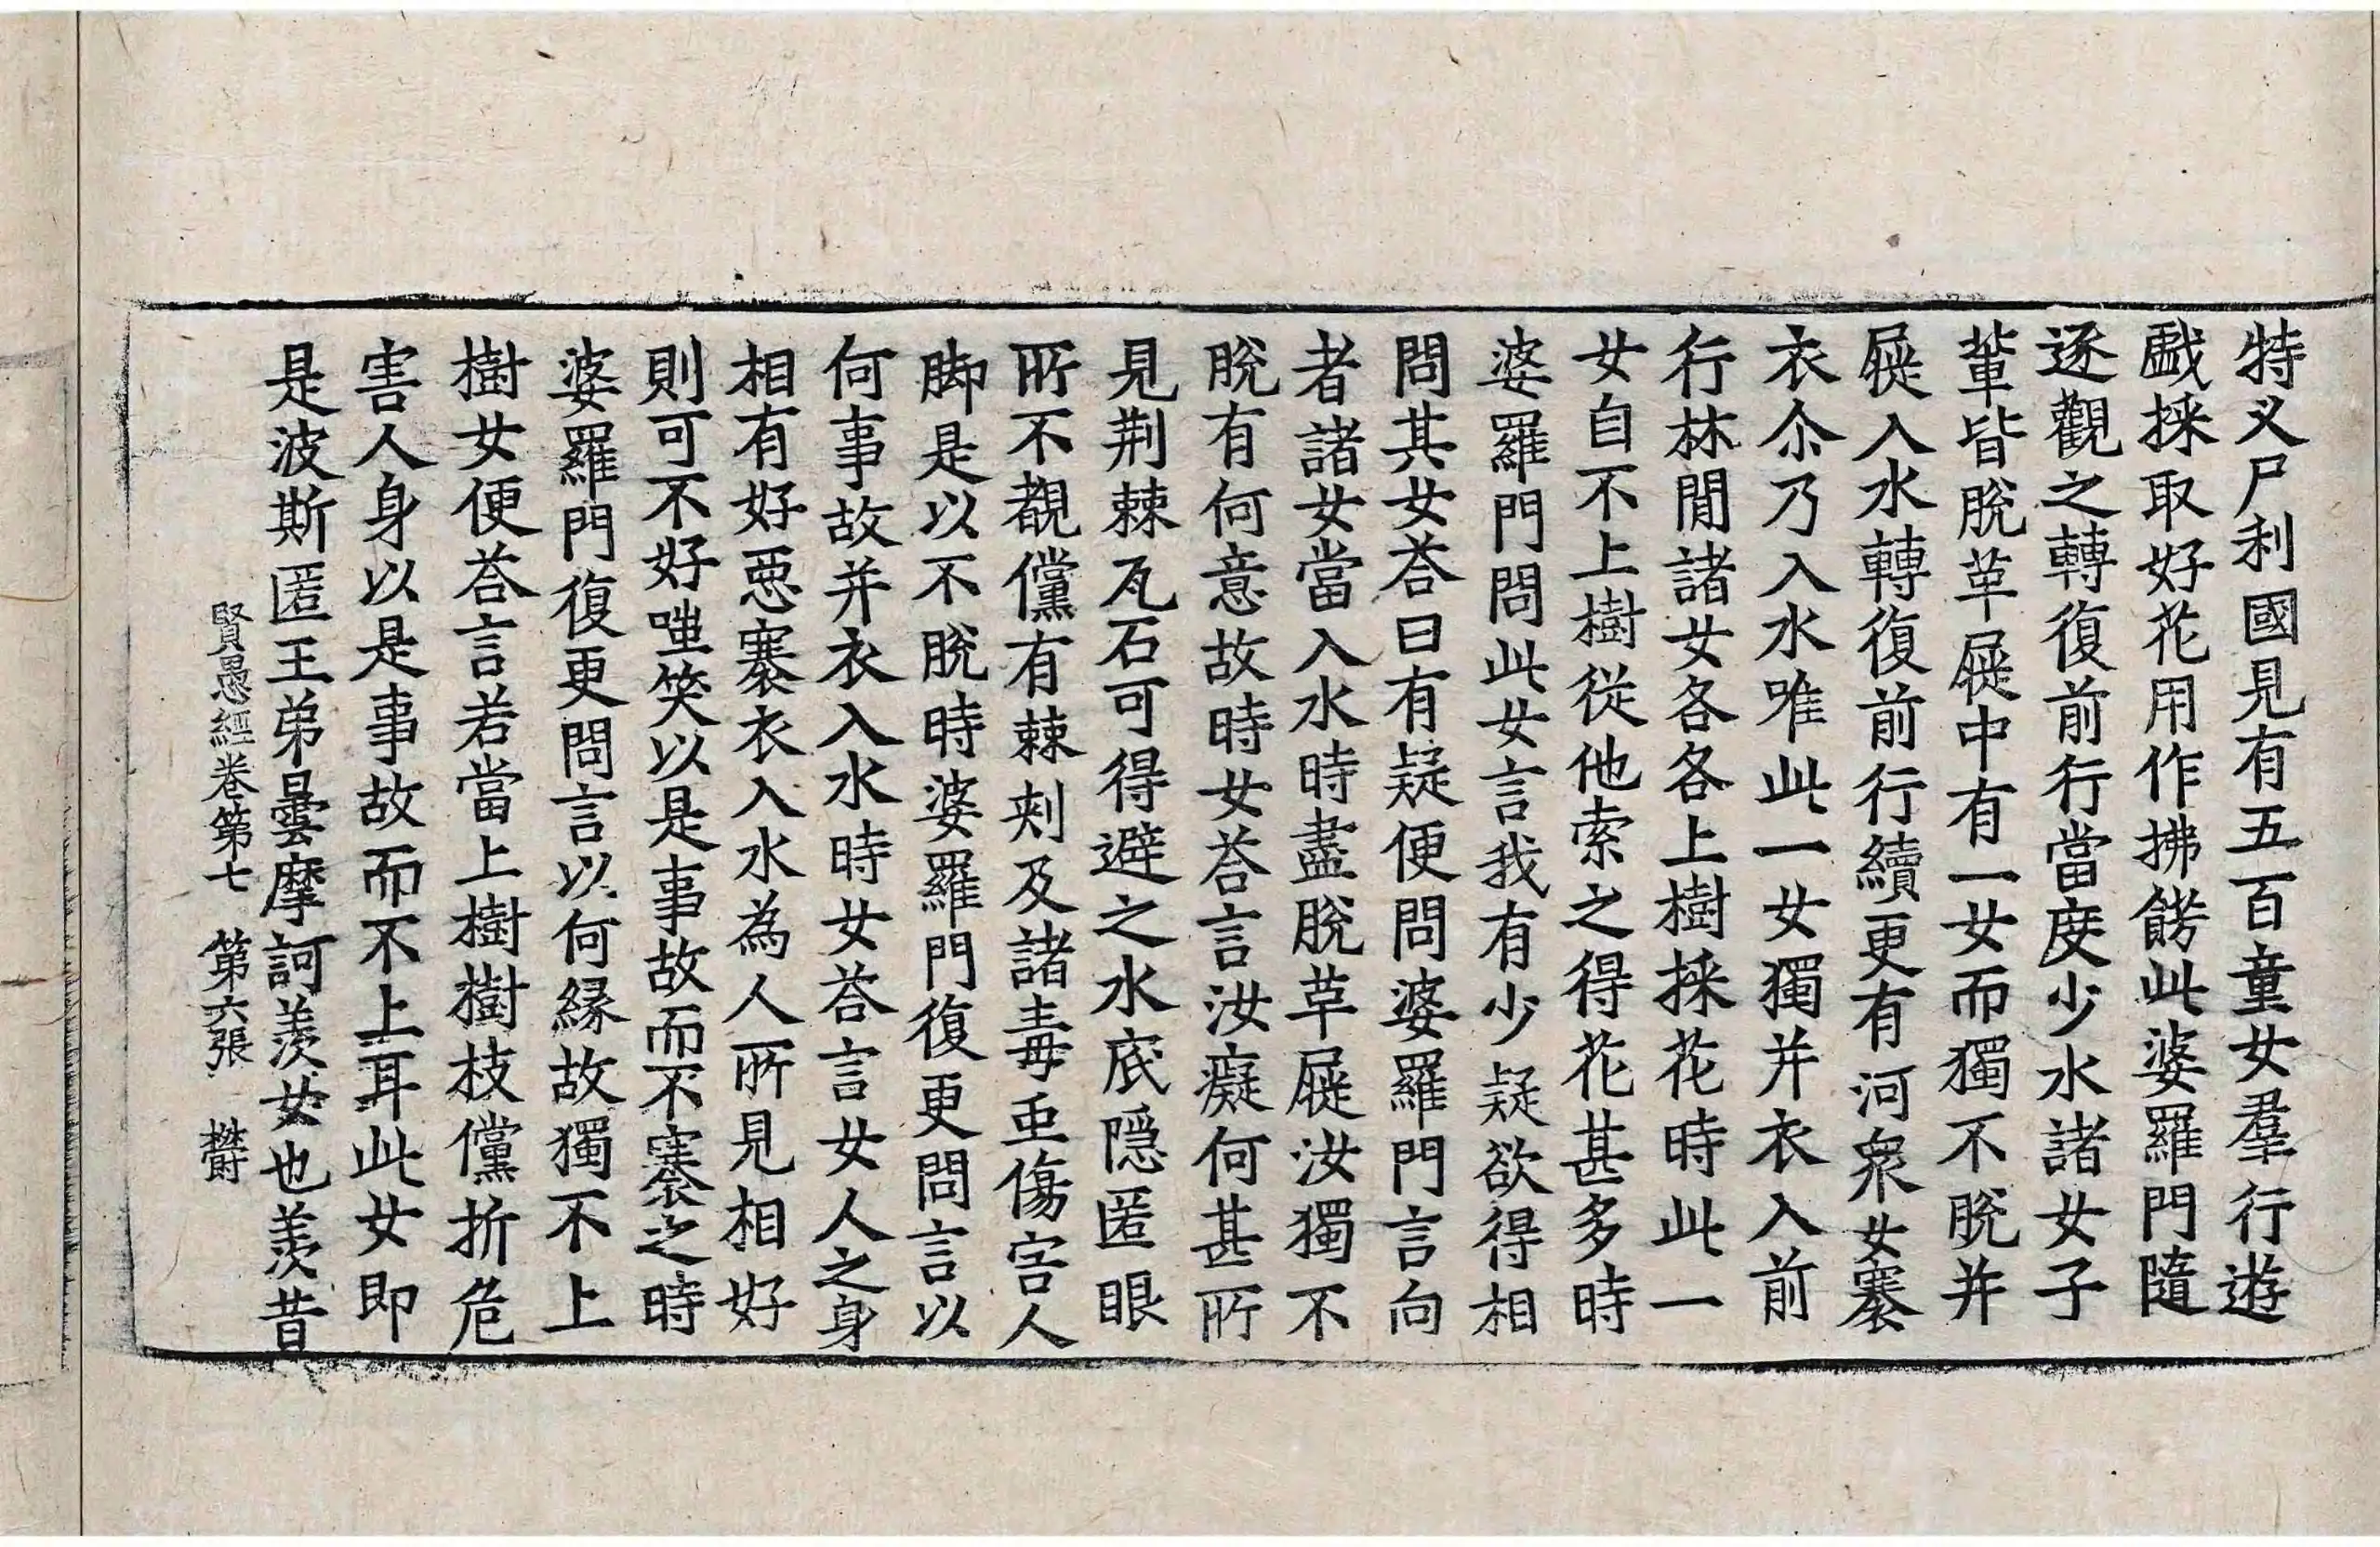 特义尸利國見有五百童女羣行遊
戱採取好花用作拂餝此婆羅門隨
逐觀之轉復前行當度少水諸女子
輩皆脫革屣中有一女而獨不脫并
屣入水轉復前行續更有河衆女褰
衣尒乃入水唯此一女獨并衣入前
行林閒諸女各各上樹採花時此一
女自不上樹從他索之得花甚多時
婆羅門問此女言我有少疑欲得相
問其女荅曰有疑便問婆羅門言向
者諸女當入水時盡脫革屣汝獨不
脫有何意故時女荅言汝癡何甚所
見荆棘瓦石可得避之水底隱匿眼
所不覩儻有棘刾及諸毒䖝傷害人
脚是以不脫時婆羅門復更問言以
何事故并衣入水時女荅言女人之身
相有好惡褰衣入水為人所見相好
則可不好嗤笑以是事故而不褰之時
婆羅門復更問言以何緣故獨不上
樹女便荅言若當上樹樹枝儻折危
害人身以是事故而不上耳此女即
是波斯匿王弟曇摩訶羡女也羡昔
賢愚經卷第七 第六張 欝